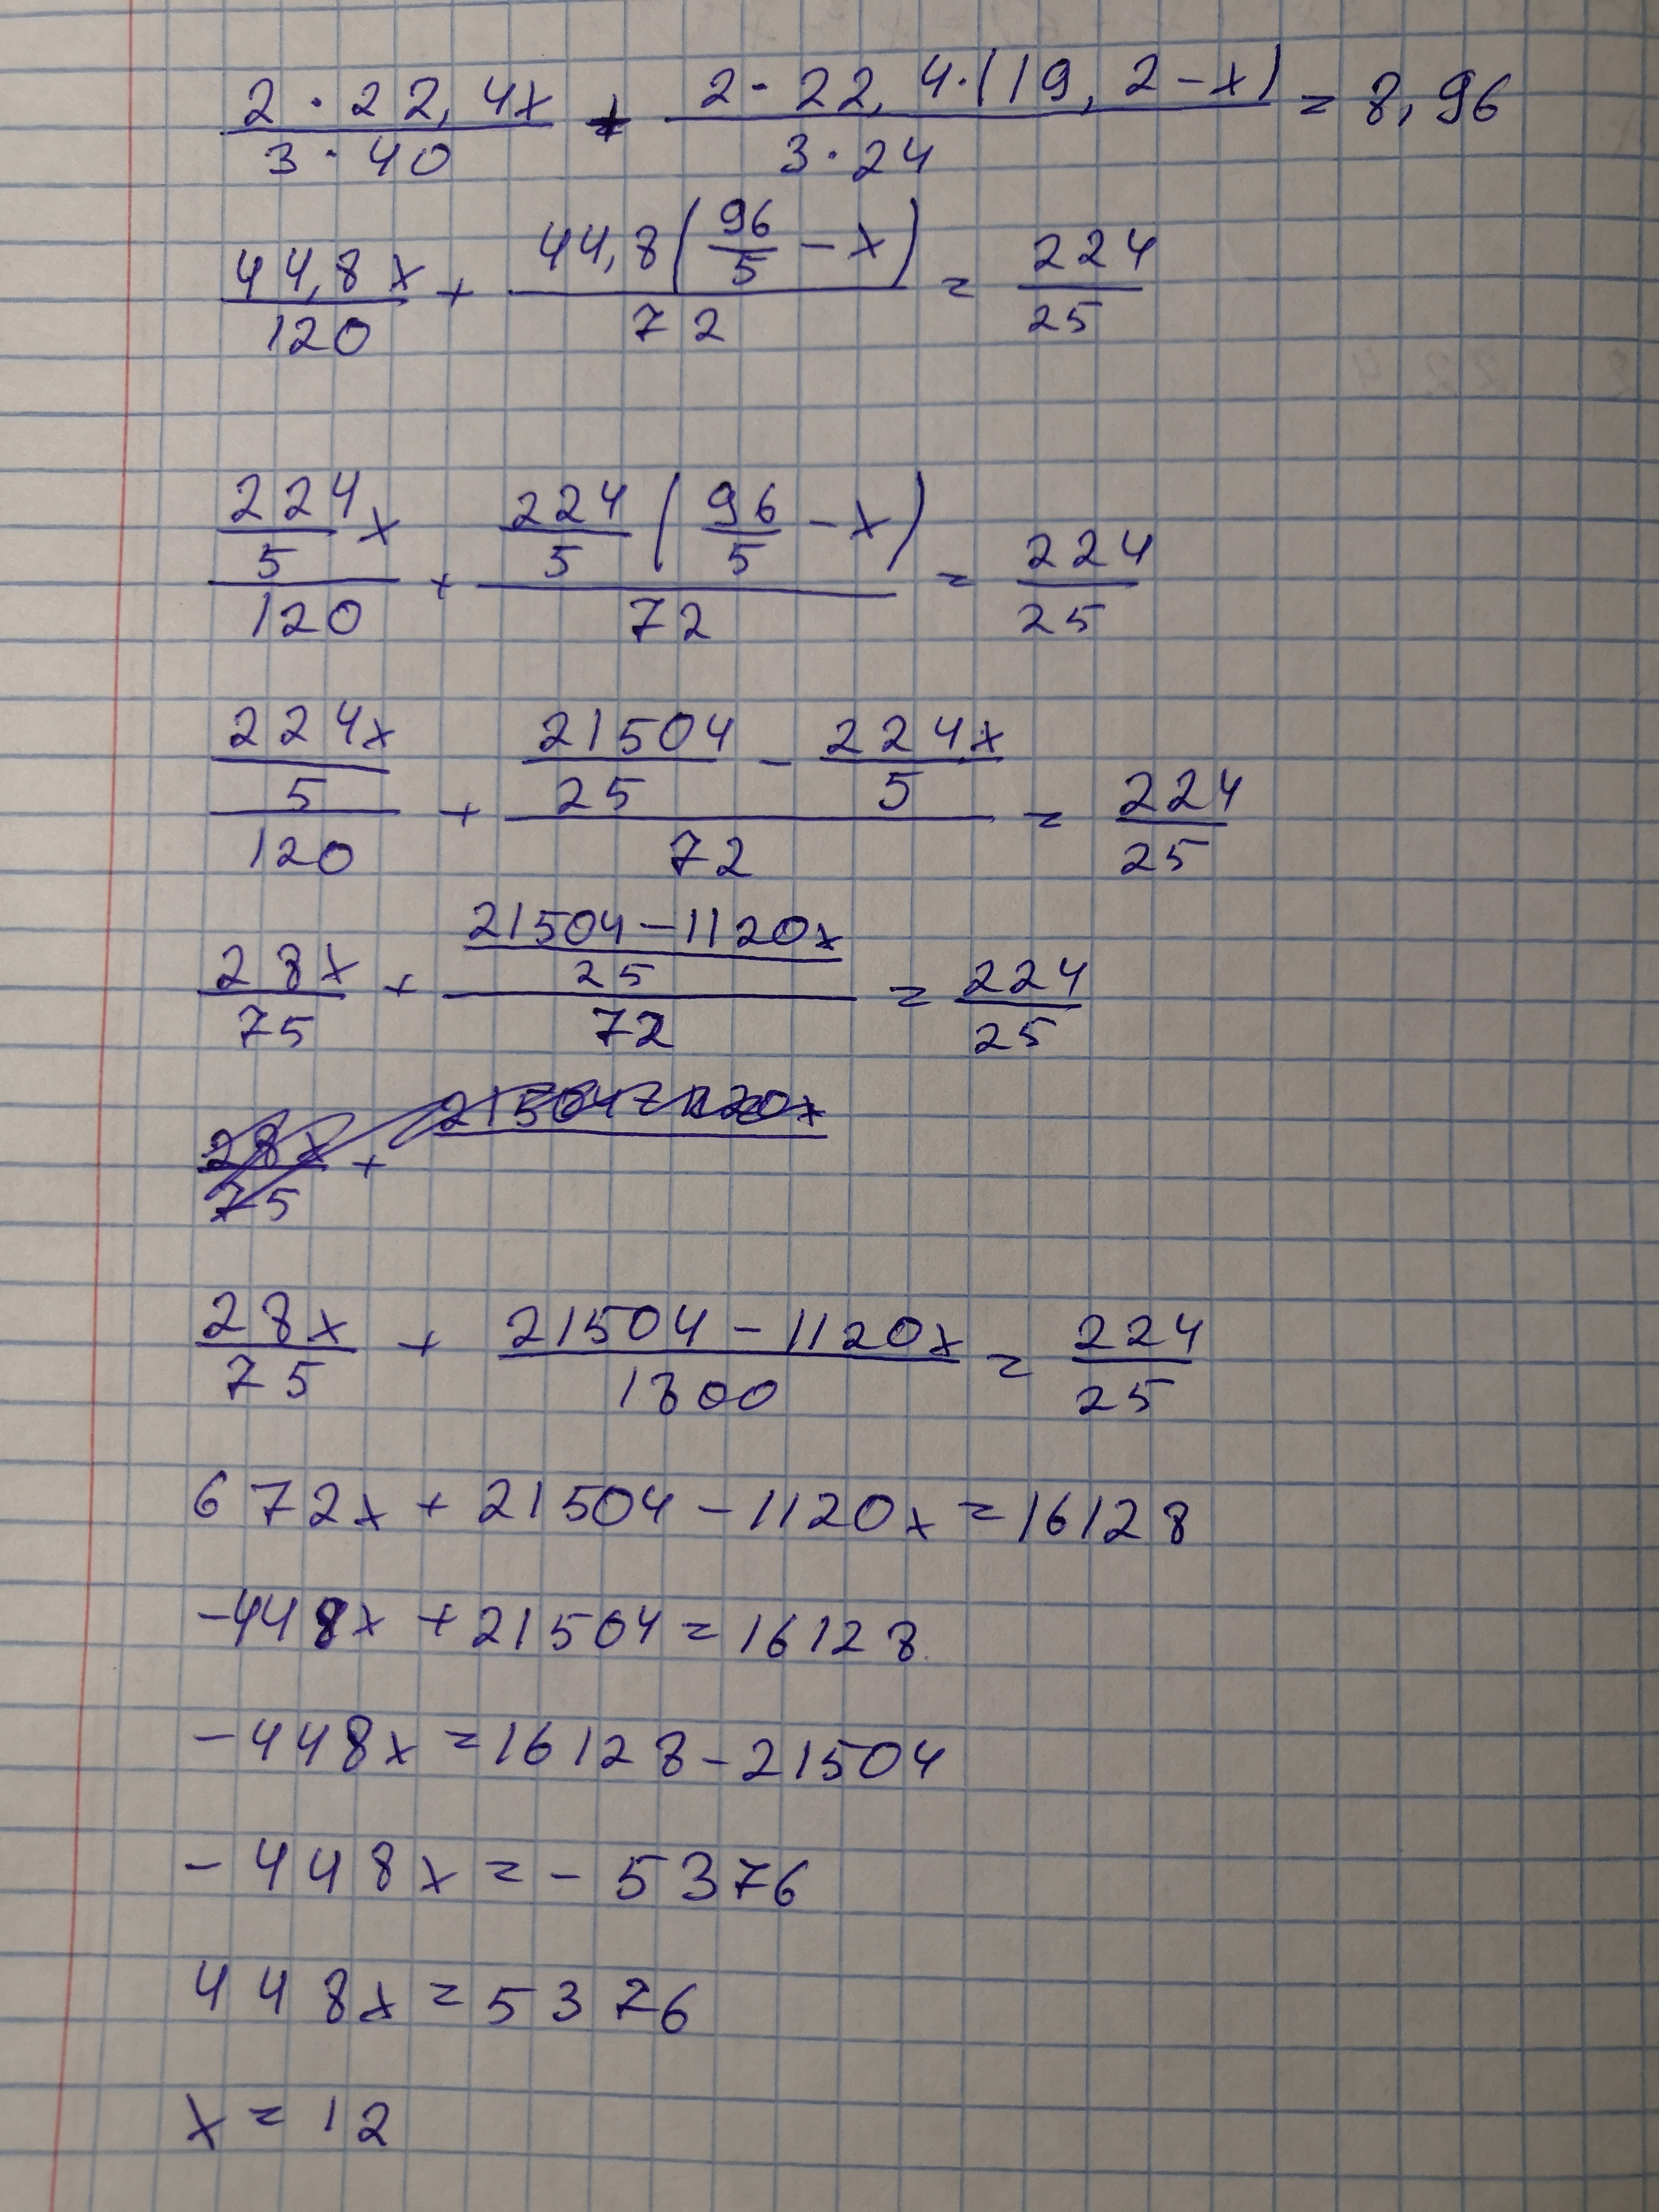 2 · 22,4x / 3 · 40 + 2 · 22,4 · (19,2 - x) / 3 · 24 = 8,96
44,8x / 120 + 44,8(96/5 - x) / 72 = 224/25
224/5 x / 120 + 224/5 (96/5 - x) / 72 = 224/25
224x/5 / 120 + 21504/25 - 224x/5 / 72 = 224/25
28x/75 + 21504 - 1120x / 25 / 72 = 224/25
28x/75 + 21504 - 1120x
28x/75 + 21504 - 1120x / 1800 = 224/25
672x + 21504 - 1120x = 16128
-448x + 21504 = 16128
-448x = 16128 - 21504
-448x = -5376
448x = 5376
x = 12